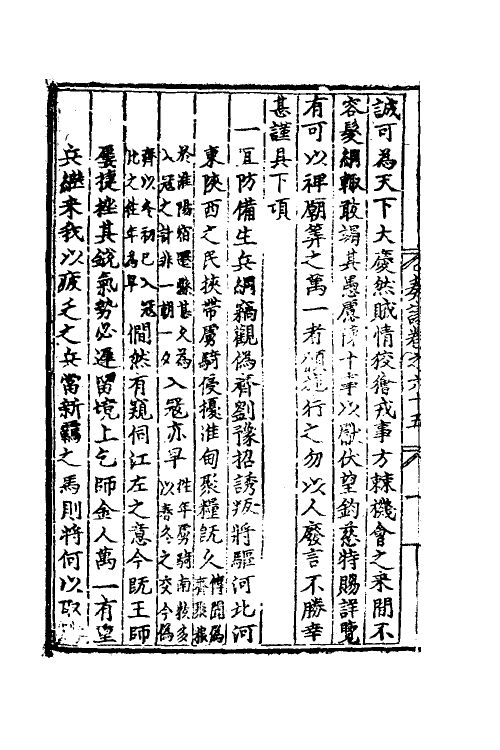 誠可為天下大慶然賊情狡獪戎事方棘機會之來間不
容髮綱輒敢竭其愚慮條十事以獻伏望鈞慈特賜詳覽
有可以裨廟筭之萬一者行之勿以人廢言不勝幸
甚謹具下項
一宜防備生兵綱竊觀偽齊劉豫招誘叛將驅河北河
東陝西之民挾帶虜騎侵擾淮甸聚糧旣久傳聞偽齊聚糧
於淮陽宿遷縣甚久為入寇之計非一朝一夕入寇亦早往年虜騎南牧多以春冬之交今偽
齊以冬初已入寇比之往年為早僩然有窺伺江左之意今旣王師
屢捷挫其銳氣勢必遲留境上乞師金人萬一有
兵繼来我以疲乏之兵當新羈之馬則將何以取
奏議卷之六十五